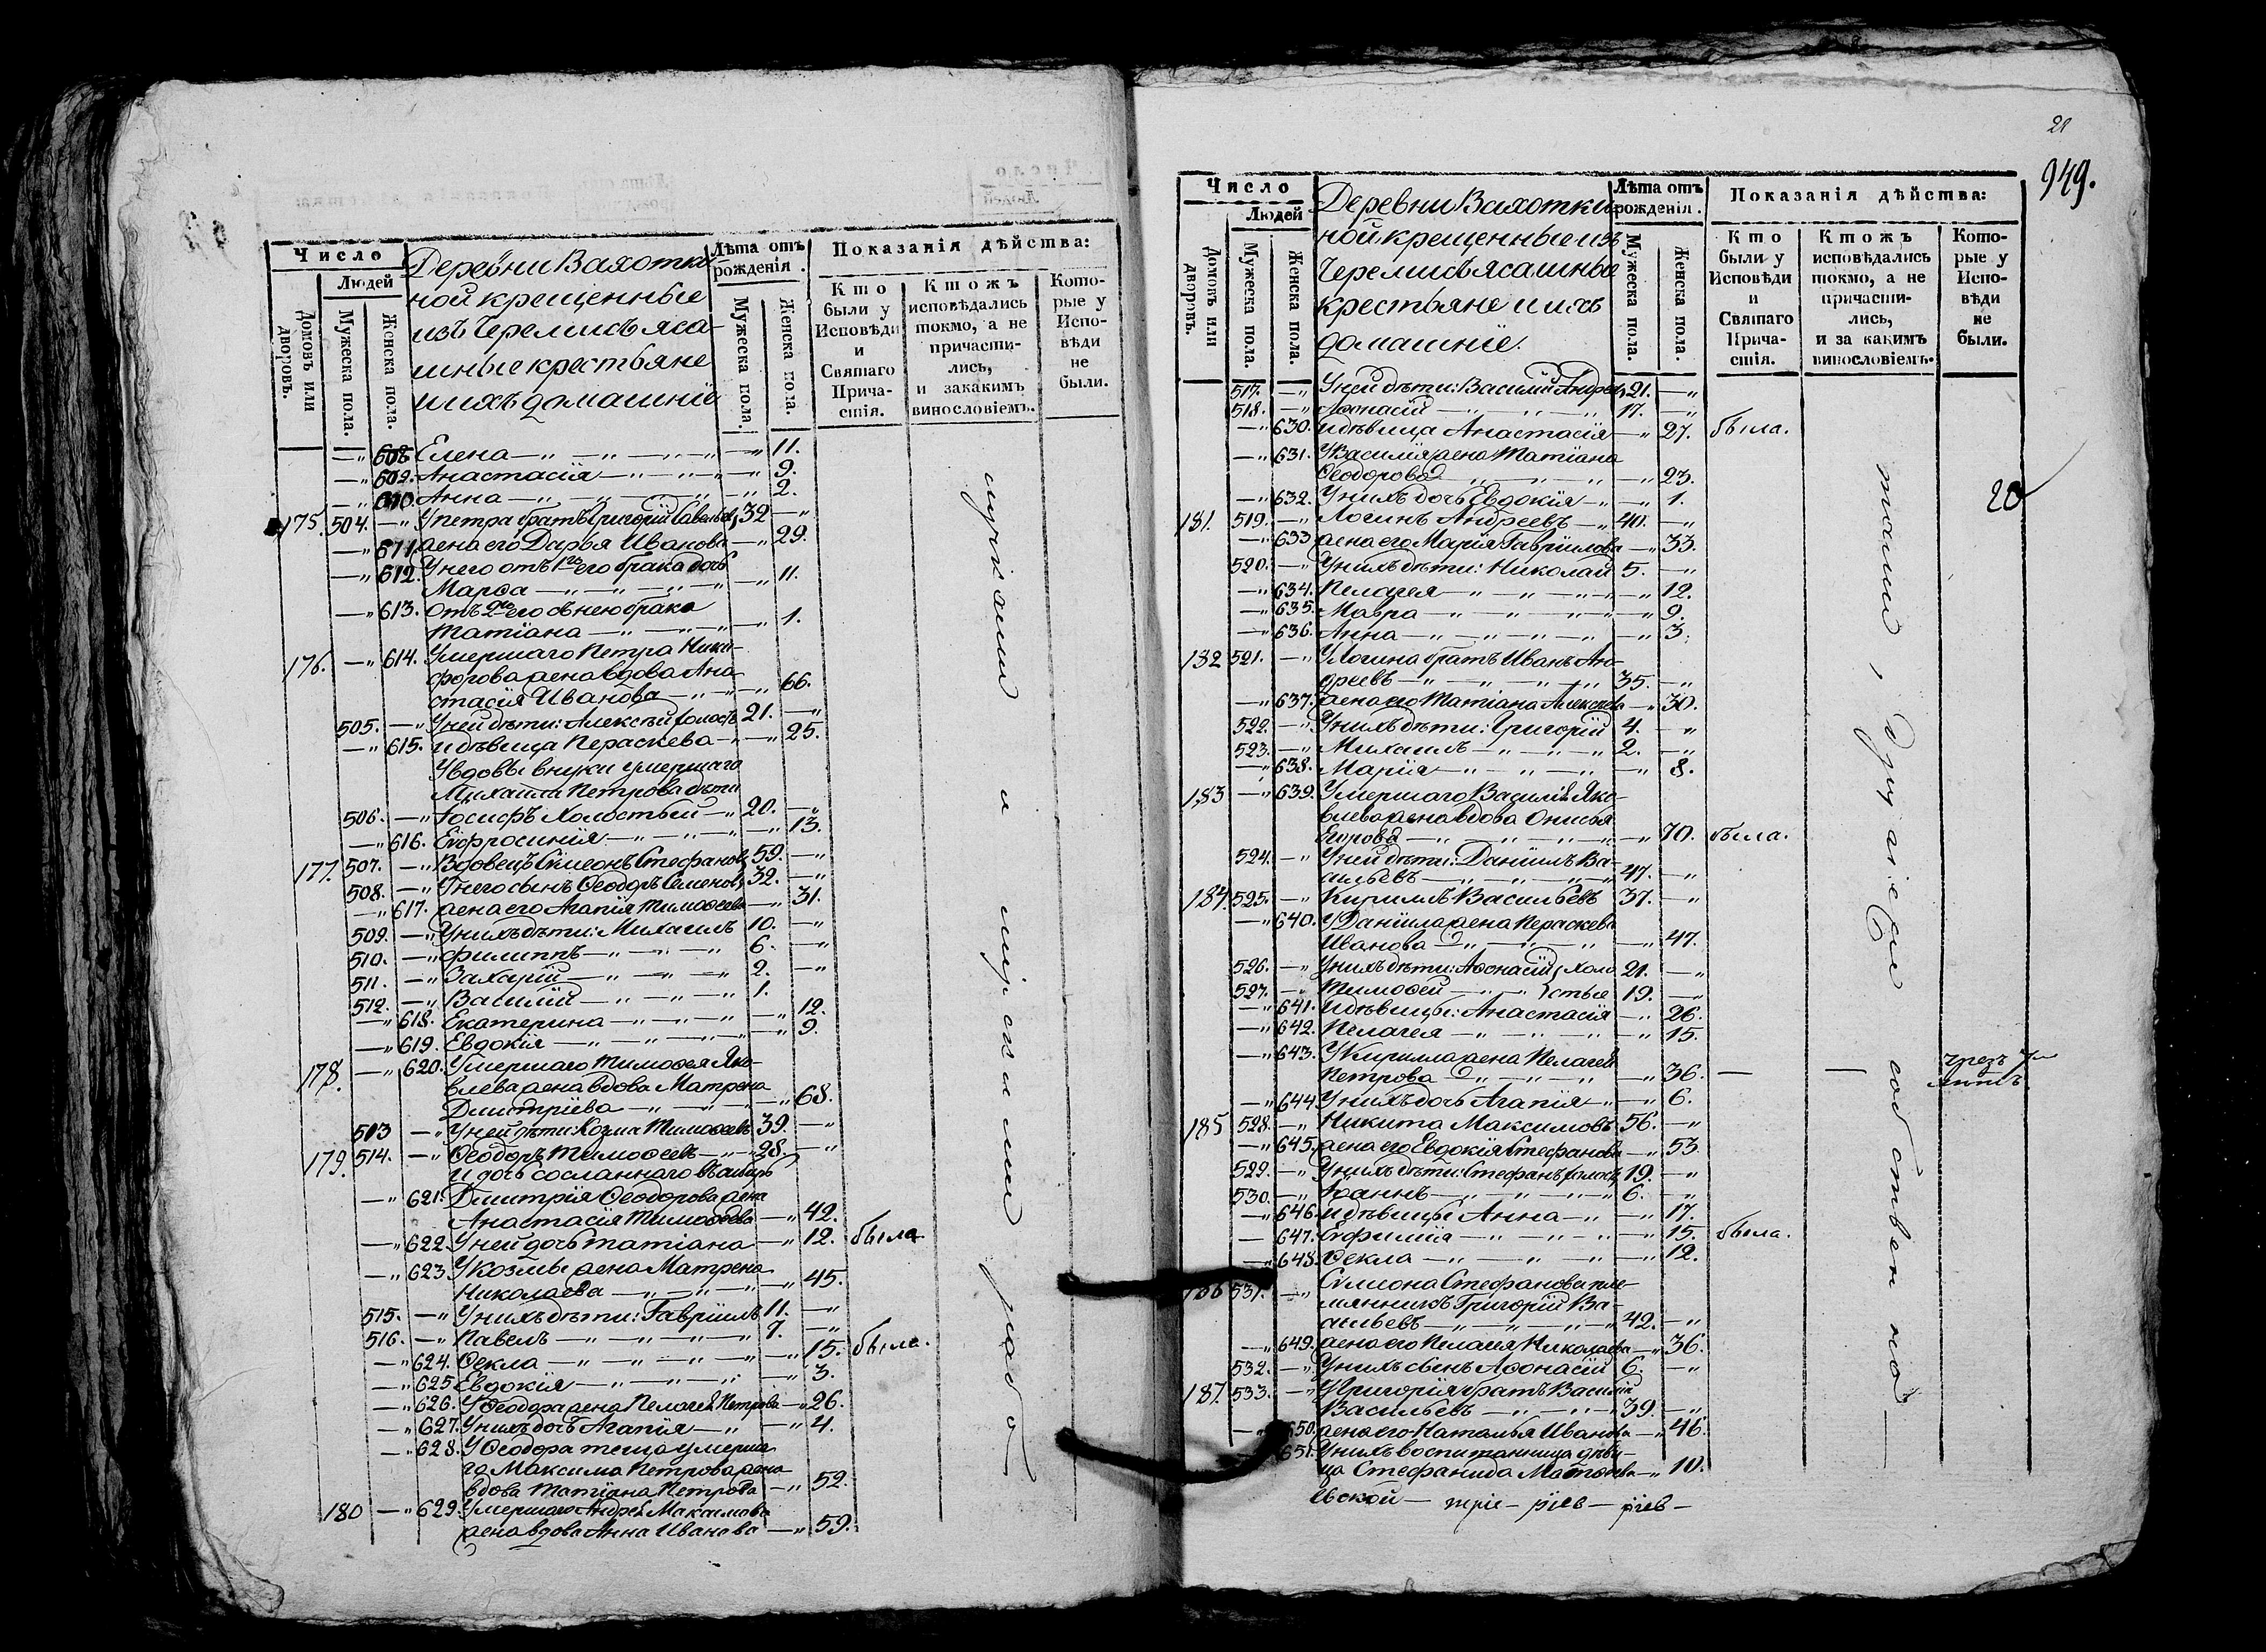 Число
Людей
Домовъ или дворовъ.
Мужеска пола.
Женска пола.
Деревни Вахотки-
ной крещенные
изъ Черемисъ яса-
шные крестьяне
и ихъ домашніе
Лѣта отъ рожденія.
Мужеска пола.
Женска пола.
Показанія дѣйства:
Кто были у Исповѣди и Святаго Прича-стія.
Ктожъ исповѣдались токмо, а не причасти-лись, и закакимъ винословіемъ.
Кото-рые у Испо-вѣди не были.
—„ 608. Елена —„ —„ —„ —„ 11.
—„ 609. Анастасія —„ —„ —„ 9.
—„ 610. Анна —„ —„ —„ 2.
175. 504. —„ У петра братъ Григорій Савельевъ 32 —„
—„ 611. жена его Дарья Иванова —„ 29.
—„ 612. У него отъ 1го его брака дочь
Марѳа —„ —„ —„ —„ 11.
—„ 613. Отъ 2го его съ нею брака
Татіана —„ —„ —„ 1.
176. —„ 614. Умершаго Петра Ники-
форова жена вдова Ана-
стасія Иванова —„ —„ 66.
505. —„ У ней дѣти: Алексѣй холостъ 21. —„
—„ 615. и дѣвица Параскева —„ —„ 25.
У вдовы внуки умершаго
Михаила Петрова дѣти
506. —„ Іосифъ Холостый —„ 20. —„
—„ 616. Евфросинія —„ —„ —„ 13.
177. 507. —„ Вдовецъ Сѵмеонъ Стефановъ 59. —„
508. —„ У него сынъ Ѳеодоръ Семеновъ 32. —„
—„ 617. жена его Агапія Тимоѳеева —„ 31.
509. —„ У нихъ дѣти: Михаилъ 10. —„
510. —„ Филиппъ —„ —„ —„ 6. —„
511. —„ Захарій —„ —„ —„ 2. —„
512. —„ Василій —„ —„ —„ 1.
—„ 618. Екатерина —„ —„ —„ 12.
—„ 619. Евдокія —„ —„ —„ —„ 9.
178. —„ 620. Умершаго Тимоѳея Яко-
влева жена вдова Матрена
Димитріева —„ —„ —„ 68.
513 —„ У ней дѣти: Козма Тимоѳеевъ 39. —„
179. 514. —„ Ѳеодоръ Тимоѳеевъ —„ 28. —„
и дочь сосланнаго въ
—„ 621. Димитрія Ѳеодорова жена
Анастасія Тимоѳеева —„ 42.
—„ 622. У ней дочь Татіана —„ 12. была
—„ 623. У козмы жена Матрена
Николаева —„ —„ —„ 45.
515. —„ У нихъ дѣти: Гавріилъ 11. —„
516. —„ Павелъ —„ —„ —„ 7. —„
—„ 624. Ѳекла —„ —„ —„ —„ 15. была.
—„ 625 Евдокія —„ —„ —„ —„ 3.
—„ 626. У Ѳеодора жена Пелагея Петрова —„ 26.
—„ 627. У нихъ дочь Агапія —„ —„ 4.
—„ 628. У Ѳеодора теща умерша-
го Максима Петрова жена
вдова Татіана Петрова —„ 52.
180 —„ 629. Умершаго Андрея Максимова
жена вдова Анна Иванова —„ 59.
21
949.
Число
Людей
Домовъ или дворовъ.
Мужеска пола.
Женска пола.
Деревни Вахотки-
ной крещенные изъ
Черемисъ ясашные
крестьяне и ихъ
домашніе.
Лѣта отъ рожденія.
Мужеска пола.
Женска пола.
Показанія дѣйства:
Кто были у Исповѣди и Святаго Прича-стія.
Ктожъ исповѣдались токмо, а не причасти-лись, и за какимъ винословіемъ.
Кото-рые у Испо-вѣди не были.
517. —„ У ней дѣти: Василій Андреевъ 21. —„
518. —„ Аѳонасій —„ —„ —„ 17. —„
—„ 630. и дѣвица Анастасія —„ 27. была.
—„ 631. У Василія жена Татіана
Ѳеодорова —„ —„ —„ 23.
20
—„ 632. У нихъ дочь Евдокія —„ —„ 1.
181. 519. —„ Логинъ Андреевъ —„ 40. —„
—„ 633 жена его Марія Гавріилова —„ 33.
520. —„ У нихъ дѣти: Николай 5. —„
—„ 634. Пелагея —„ —„ —„ —„ 12.
—„ 635. Мавра —„ —„ —„ —„ 9.
—„ 636. Анна —„ —„ —„ —„ 3.
182 521. —„ У Логина братъ Иванъ Ан-
дреевъ —„ —„ —„ 35. —„
—„ 637. жена его Татіана Алексѣева —„ 30.
522. —„ У нихъ дѣти: Григорій 4. —„
523. —„ Михаилъ —„ —„ —„ 2. —„
—„ 638. Марія —„ —„ —„ —„ 8.
183 —„ 639. Умершаго Василія Яко-
влева жена вдова Онисья
Егорова —„ —„ —„ 70. была.
524. —„ У ней дѣти: Даніилъ Ва-
сильевъ —„ —„ —„ 47. —„
184. 525. —„ Кириллъ Васильевъ 37. —„
—„ 640. У Даніила жена Параскева
Иванова —„ —„ —„ 47.
526. —„ У нихъ дѣти: Аѳонасій холо- 21. —„
527. —„ Тимоѳей —„ —„ стые 19. —„
—„ 641. и дѣвицы: Анастасія —„ 26.
—„ 642. Пелагея —„ —„ —„ 15.
—„ 643. У Кирилла жена Пелагея
Петрова —„ —„ —„ 36. — —
—„ 644 У нихъ дочь Агапія —„ —„ 6.
185 528. —„ Никита Максимовъ 56. —„
—„ 645. жена его Евдокія Стефанова —„ 53
529. —„ У нихъ дѣти: Стефанъ холостъ 19. —„
530. —„ Іоаннъ —„ —„ —„ 6. —„
—„ 646. и дѣвицы Анна —„ —„ 17.
— 647. Евфимія —„ —„ —„ 15. была.
—„ 648. Ѳекла —„ —„ —„ —„ 12.
186 531. —„ Сѵмеона Стефанова пле-
мянникъ Григорій Ва-
сильевъ —„ —„ —„ 42. —„
—„ 649. жена его Пелагея Николаева —„ 36.
532. —„ У нихъ сынъ Аѳонасій 6. —„
187. 533. —„ У Григорія братъ Василій
Васильевъ —„ —„ —„ 39. —„
—„ 650. жена его Наталья Иванова —„ 46.
651. У нихъ воспитанница дѣви-
ца Стефанида Матвѣева —„ 10.